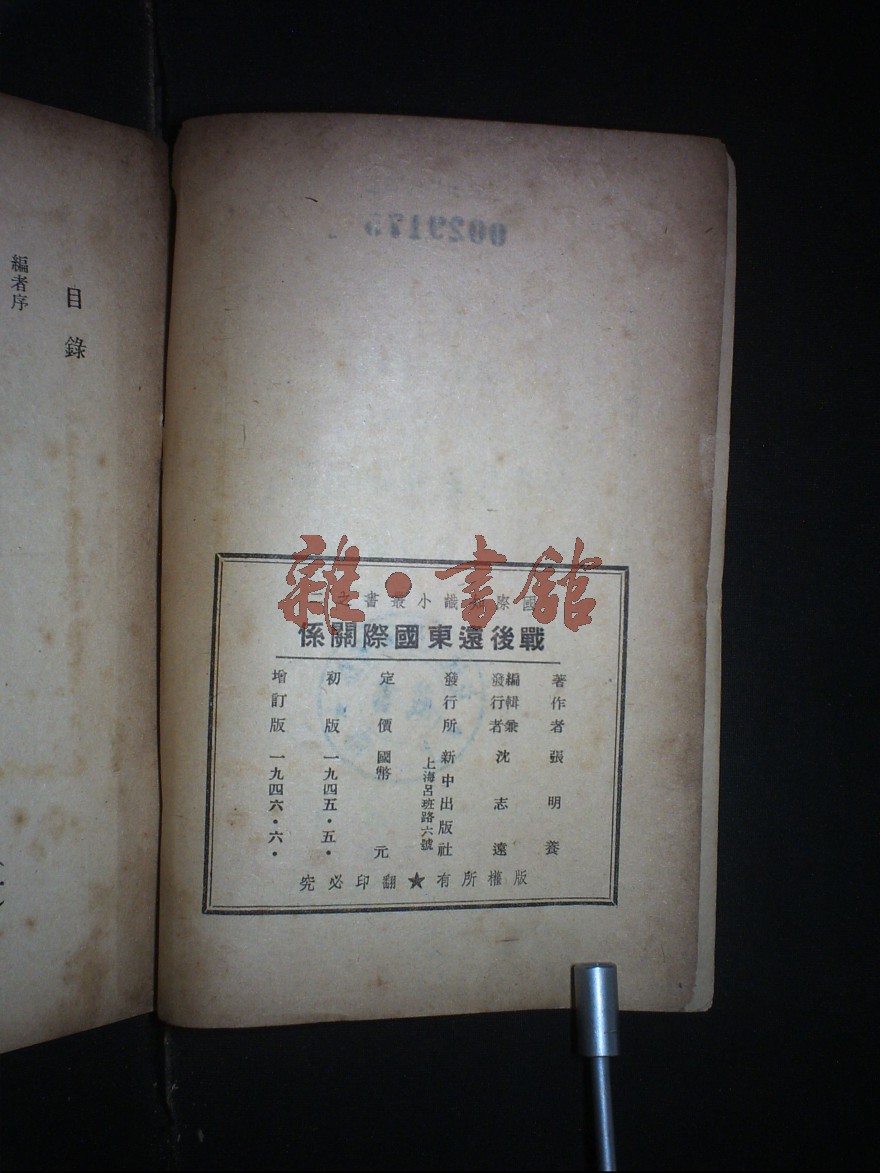 目錄
編者序
0029175
雜·書館
國際知識小叢書之
戰後遠東國際關係
著作者 張明養
編輯兼發行者 沈志遠
發行所 新中出版社
上海呂班路六號
定價 國幣 元
初版 一九四五·五·
增訂版 一九四六·六·
版權所有★翻印必究